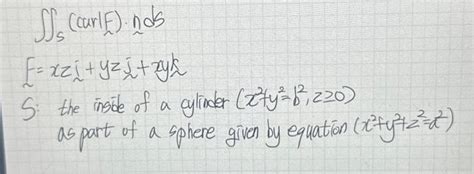 ∬_S (curl F̰)·n̰ ds
F̰ = xz ḭ + yz j̰ + xy k̰
S: the inside of a cylinder (x²+y²=b², z≥0)
as part of a sphere given by equation (x²+y²+z²=a²)